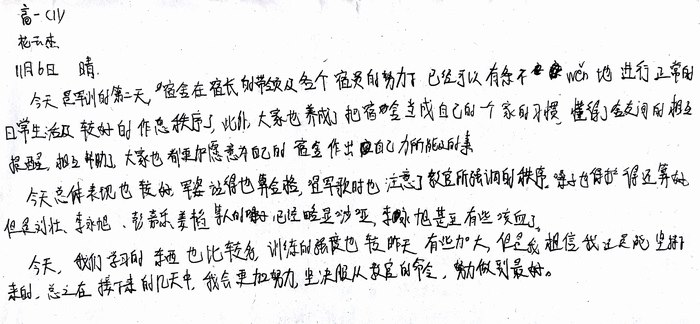 高一(1)
花云杰
11月6日 晴.
今天是军训的第二天,宿舍在宿长的带领以及各个宿员的努力下已经可以有条不wěn地进行正常的
日常生活以及较好的作息秩序了,此外,大家也养成了把宿舍当成自己的一个家的习惯,懂得了舍友间的相互
提醒,相互帮助,大家也都更加愿意为自己的宿舍作出自己力所能及的事
今天总体表现也较好,军姿站得也算合格,唱军歌时也注意了教官所强调的秩序,嗓子也保护得还算好
但是刘壮、李永旭、彭嘉乐姜哲等人的嗓子已经略显沙哑,李永旭甚至有些咳血了。
今天,我们学习的东西也比较多,训练的强度也较昨天有些加大,但是我相信我还是能坚持
来的,总之在接下来的几天中,我会更加努力,坚决服从教官的命令,努力做到最好。